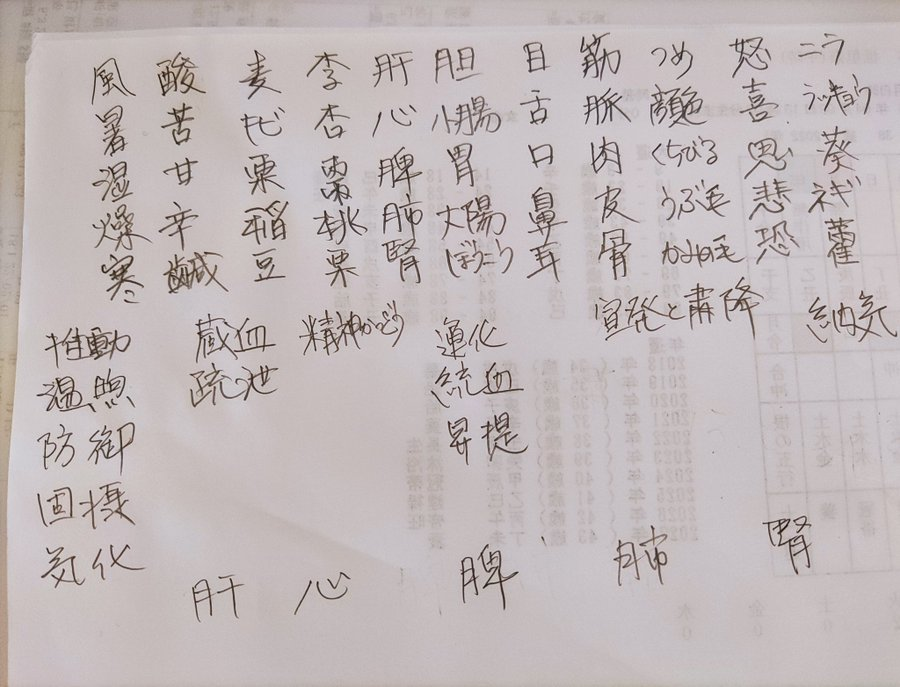 風 酸 麦 李 肝 胆 目 筋 つめ 怒 ニラ
暑 苦 キビ 杏 心 小腸 舌 脈 顔 喜 らっきょう
湿 甘 粟 棗 脾 胃 口 肉 くちびる 思 葵
燥 辛 稲 桃 肺 大腸 鼻 皮 うぶ毛 悲 ネギ
寒 鹹 豆 栗 腎 ぼうこう 耳 骨 かみの毛 恐 藿
推動 蔵血 精神かつどう 運化 宣発と粛降 納気
温煦 疏泄 統血
防御 昇提
固摂
気化
肝 心 脾 肺 腎